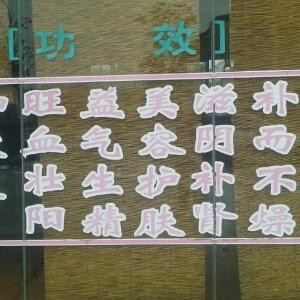 [功 效]
补而不燥
滋阴补肾
美容护肤
益气生精
旺血壮阳